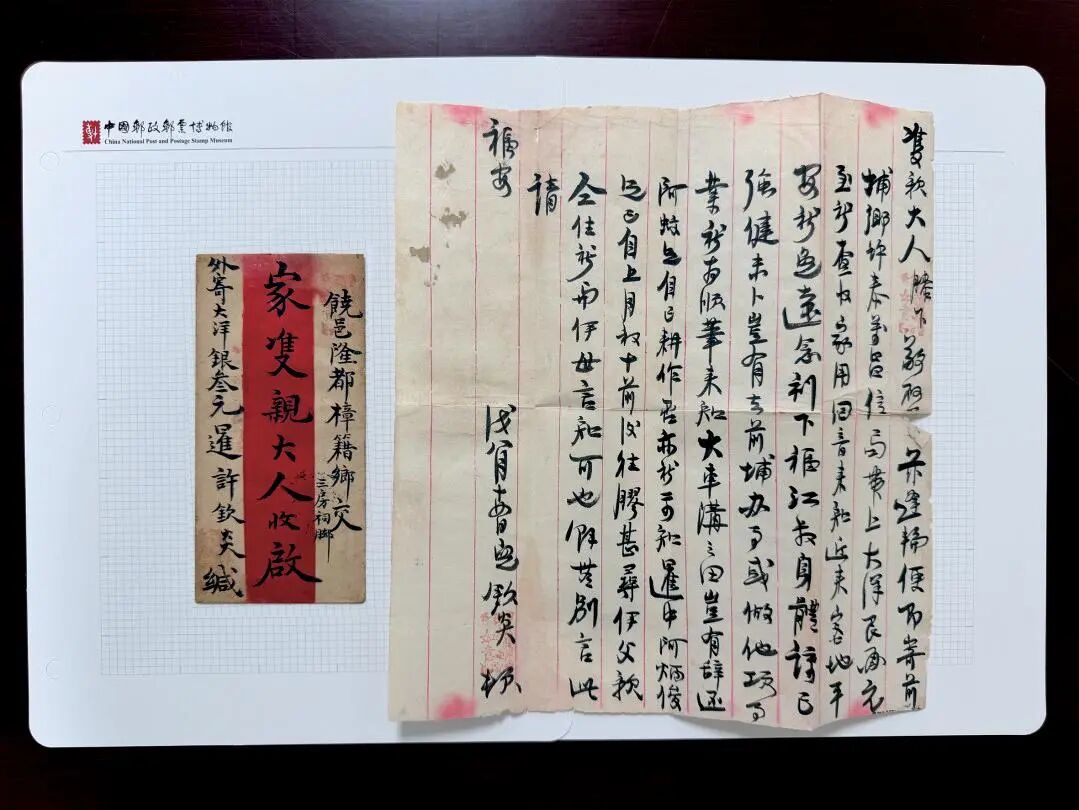 中國郵政郵票博物館
China National Post and Postage Stamp Museum
饒邑隆都樟籍鄉交
三房祠腳
家雙親大人收啟
外寄大洋銀叁元暹許欽炎緘
雙親大人膝下敬稟 茲逢輪便即寄前
埔鄉許泰萬昌信局帶上大洋艮兩元
至祈查收家用回音來知近來客地平
安祈免遠念利下福江叔身體諒已
強健未卜豈有去前埔办事或做他項事
業祈即順筆來知大車溝之田豈有辭还
阿蚊之自己耕作否亦祈示知暹中阿炳俊
足已自上月初十前後往膠甚尋伊父親
仝住祈與伊母言知可也餘無別言此
請
福安
戊 月 日兒欽炎稟